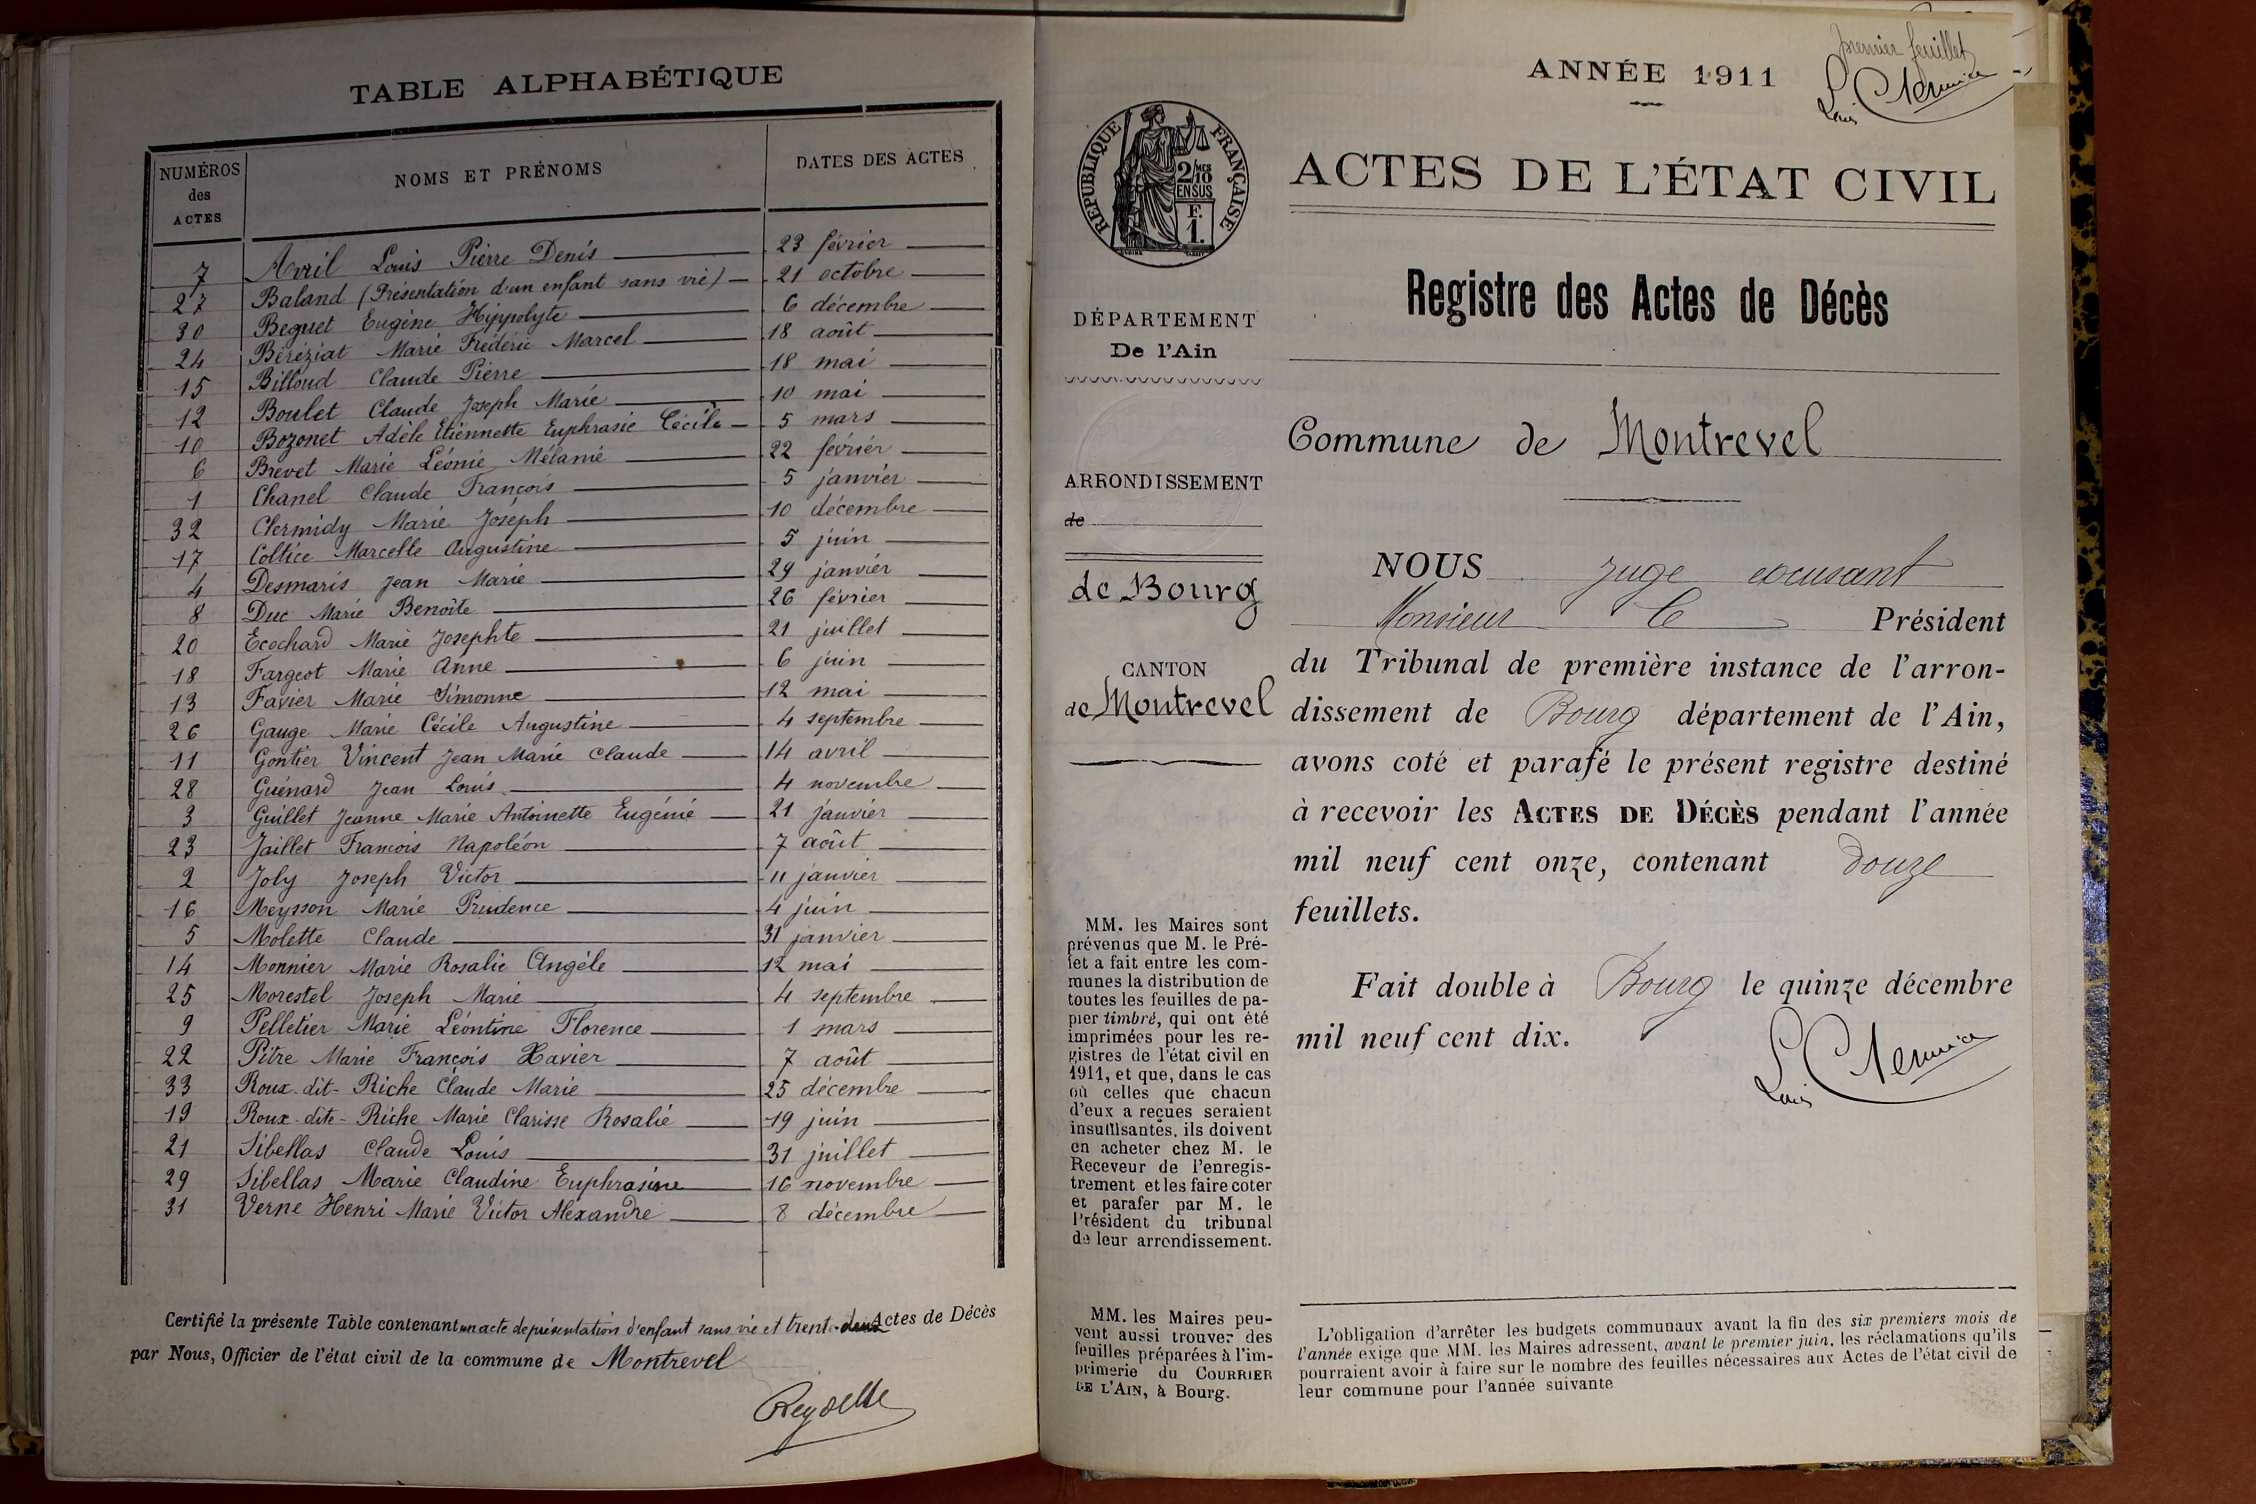 TABLE ALPHABÉTIQUE
NUMÉROS des ACTES NOMS ET PRÉNOMS DATES DES ACTES
7 Avril Louis Pierre Denis 23 février
27 Baland (Présentation d'un enfant sans vie) 21 octobre
30 Beguet Eugène Hippolyte 6 décembre
24 Béréziat Marie Frédéric Marcel 18 août
15 Billoud Claude Pierre 18 mai
12 Boulet Claude Joseph Marie 10 mai
10 Bozonet Adèle Etiennette Euphrasie Cécile 5 mars
6 Brevet Marie Léonie Mélanie 22 février
1 Chanel Claude François 5 janvier
32 Clermidy Marie Joseph 10 décembre
17 Coltice Marcelle Augustine 5 juin
4 Desmaris Jean Marie 29 janvier
8 Duc Marie Benoîte 26 février
20 Ecochard Marie Josephte 21 juillet
18 Fargeot Marie Anne 6 juin
13 Favier Marie Simonne 12 mai
26 Gauge Marie Cécile Augustine 4 septembre
11 Gontier Vincent Jean Marie Claude 14 avril
28 Guénard Jean Louis 4 novembre
3 Guillet Jeanne Marie Antoinette Eugénie 21 janvier
23 Jaillet François Napoléon 7 août
2 Joly Joseph Victor 11 janvier
16 Meysson Marie Prudence 4 juin
5 Molette Claude 31 janvier
14 Monnier Marie Rosalie Angèle 12 mai
25 Morestel Joseph Marie 4 septembre
9 Pelletier Marie Léontine Florence 1 mars
22 Pitre Marie François Xavier 7 août
33 Roux-dit-Riche Claude Marie 25 décembre
19 Roux-dite-Riche Marie Clarisse Rosalie 19 juin
21 Sibellas Claude Louis 31 juillet
29 Sibellas Marie Claudine Euphrasine 16 novembre
31 Verne Henri Marie Victor Alexandre 8 décembre
Certifié la présente Table contenant un acte de présentation d'enfant sans vie et trente-deux Actes de Décès
par Nous, Officier de l'état civil de la commune de Montrevel
premier feuillet
ANNÉE 1911
RÉPUBLIQUE FRANÇAISE
2/10 MES
EN SUS
F.
1.
ACTES DE L'ÉTAT CIVIL
Registre des Actes de Décès
DÉPARTEMENT
De l'Ain
ARRONDISSEMENT
de
de Bourg
CANTON
de Montrevel
MM. les Maires sont
prévenus que M. le Pré-
fet a fait entre les com-
munes la distribution de
toutes les feuilles de pa-
pier timbré, qui ont été
imprimées pour les re-
gistres de l'état civil en
1911, et que, dans le cas
où celles que chacun
d'eux a reçues seraient
insuffisantes, ils doivent
en acheter chez M. le
Receveur de l'enregis-
trement et les faire coter
et parafer par M. le
Président du tribunal
de leur arrondissement.
MM. les Maires peu-
vent aussi trouver des
feuilles préparées à l'im-
primerie du COURRIER
DE L'AIN, à Bourg.
Commune de Montrevel
NOUS Juge excusant
Monsieur le Président
du Tribunal de première instance de l'arron-
dissement de Bourg département de l'Ain,
avons coté et parafé le présent registre destiné
à recevoir les ACTES DE DÉCÈS pendant l'année
mil neuf cent onze, contenant douze
feuillets.
Fait double à Bourg le quinze décembre
mil neuf cent dix.
L'obligation d'arrêter les budgets communaux avant la fin des six premiers mois de
l'année exige que MM. les Maires adressent, avant le premier juin, les réclamations qu'ils
pourraient avoir à faire sur le nombre des feuilles nécessaires aux Actes de l'état civil de
leur commune pour l'année suivante